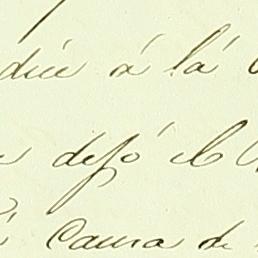 dice á lá
dejó el
Causa de